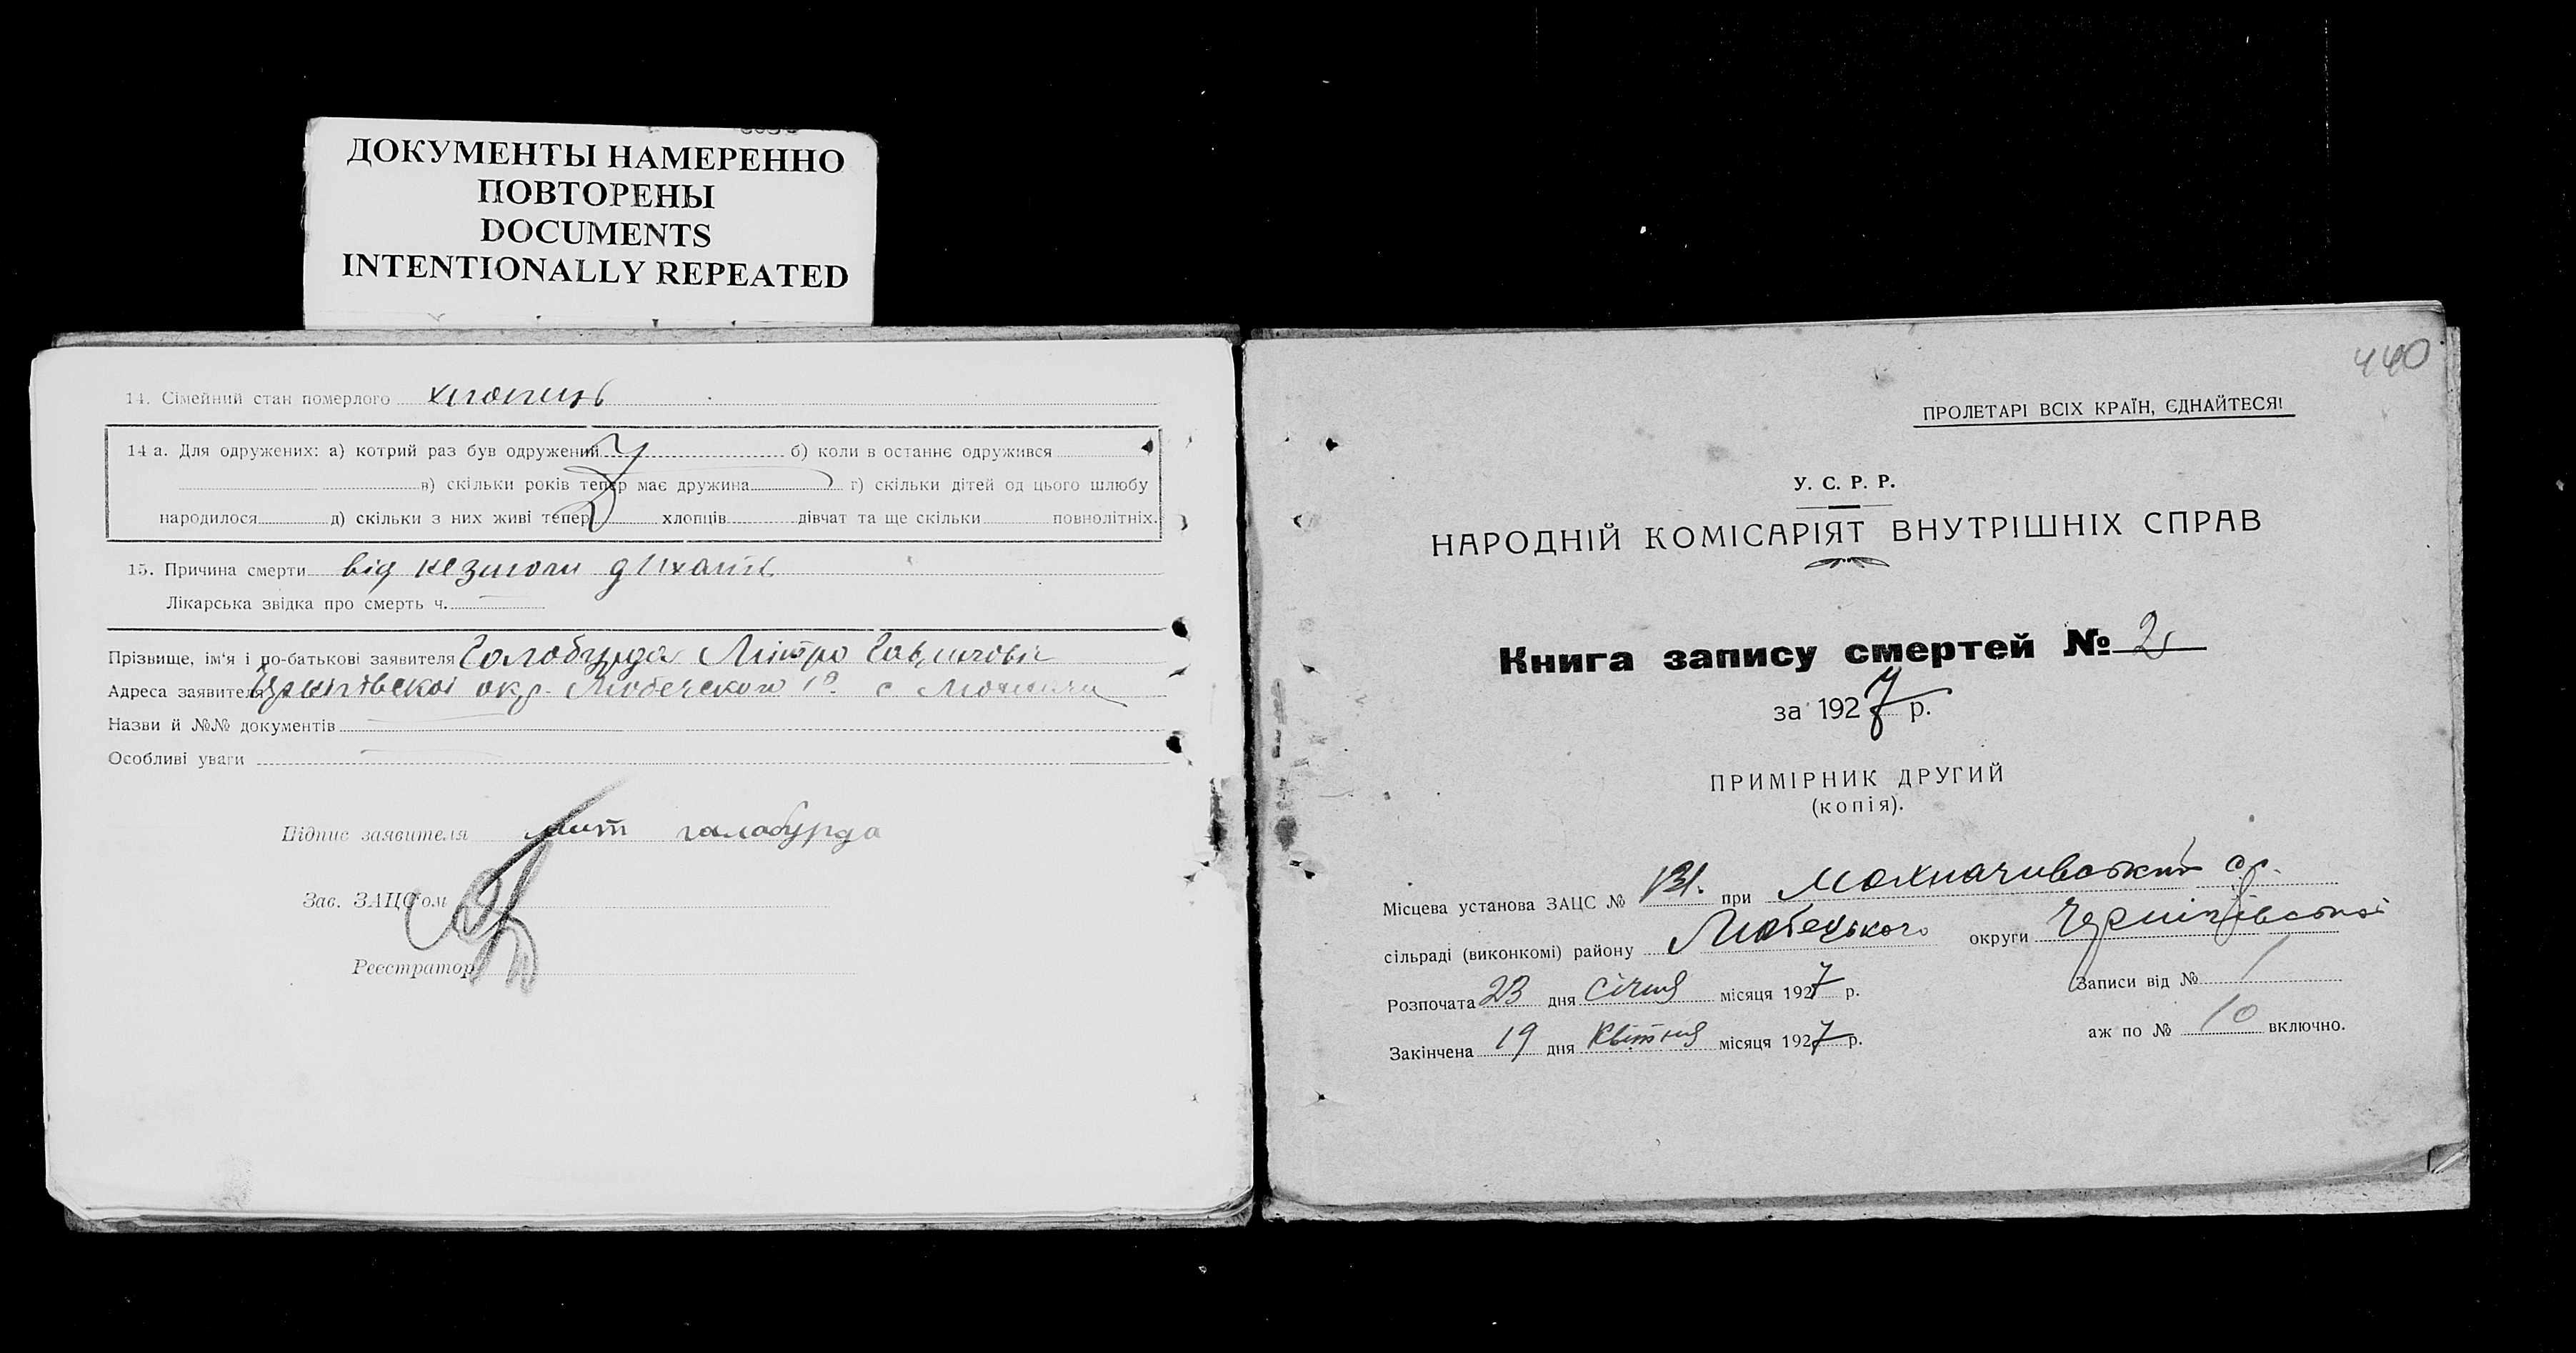 ДОКУМЕНТЫ НАМЕРЕННО
ПОВТОРЕНЫ
DOCUMENTS
INTENTIONALLY REPEATED
14. Сімейний стан померлого хлопиць
14 а. Для одружених: а) котрий раз був одружений б) коли в останнє одружився
в) скільки років тепер має дружина г) скільки дітей од цього шлюбу
народилося д) скільки з них живі тепер хлопців дівчат та ще скільки повнолітніх.
15. Причина смерти від незмоги дихать
Лікарська звідка про смерть ч.
Прізвище, ім'я і по-батькові заявителя Голобурда
Адреса заявителя Чернігівскоі окр. Любечского р. с.
Назви й №№ документів
Особливі уваги
Підпис заявителя галабурда
Зав. ЗАЦС'ом
Реєстратор
440
ПРОЛЕТАРІ ВСІХ КРАЇН, ЄДНАЙТЕСЯ!
У. С. Р. Р.
НАРОДНІЙ КОМІСАРІЯТ ВНУТРІШНІХ СПРАВ
Книга запису смертей № 2
за 1927 р.
ПРИМІРНИК ДРУГИЙ
(копія).
Місцева установа ЗАЦС № 131. при Мохначивський с/р.
сільраді (виконкомі) району Любецького округи Чернігівської
Розпочата 23 дня січня місяця 1927 р. Записи від № 1
Закінчена 19 дня квітня місяця 1927 р. аж по № 10 включно.